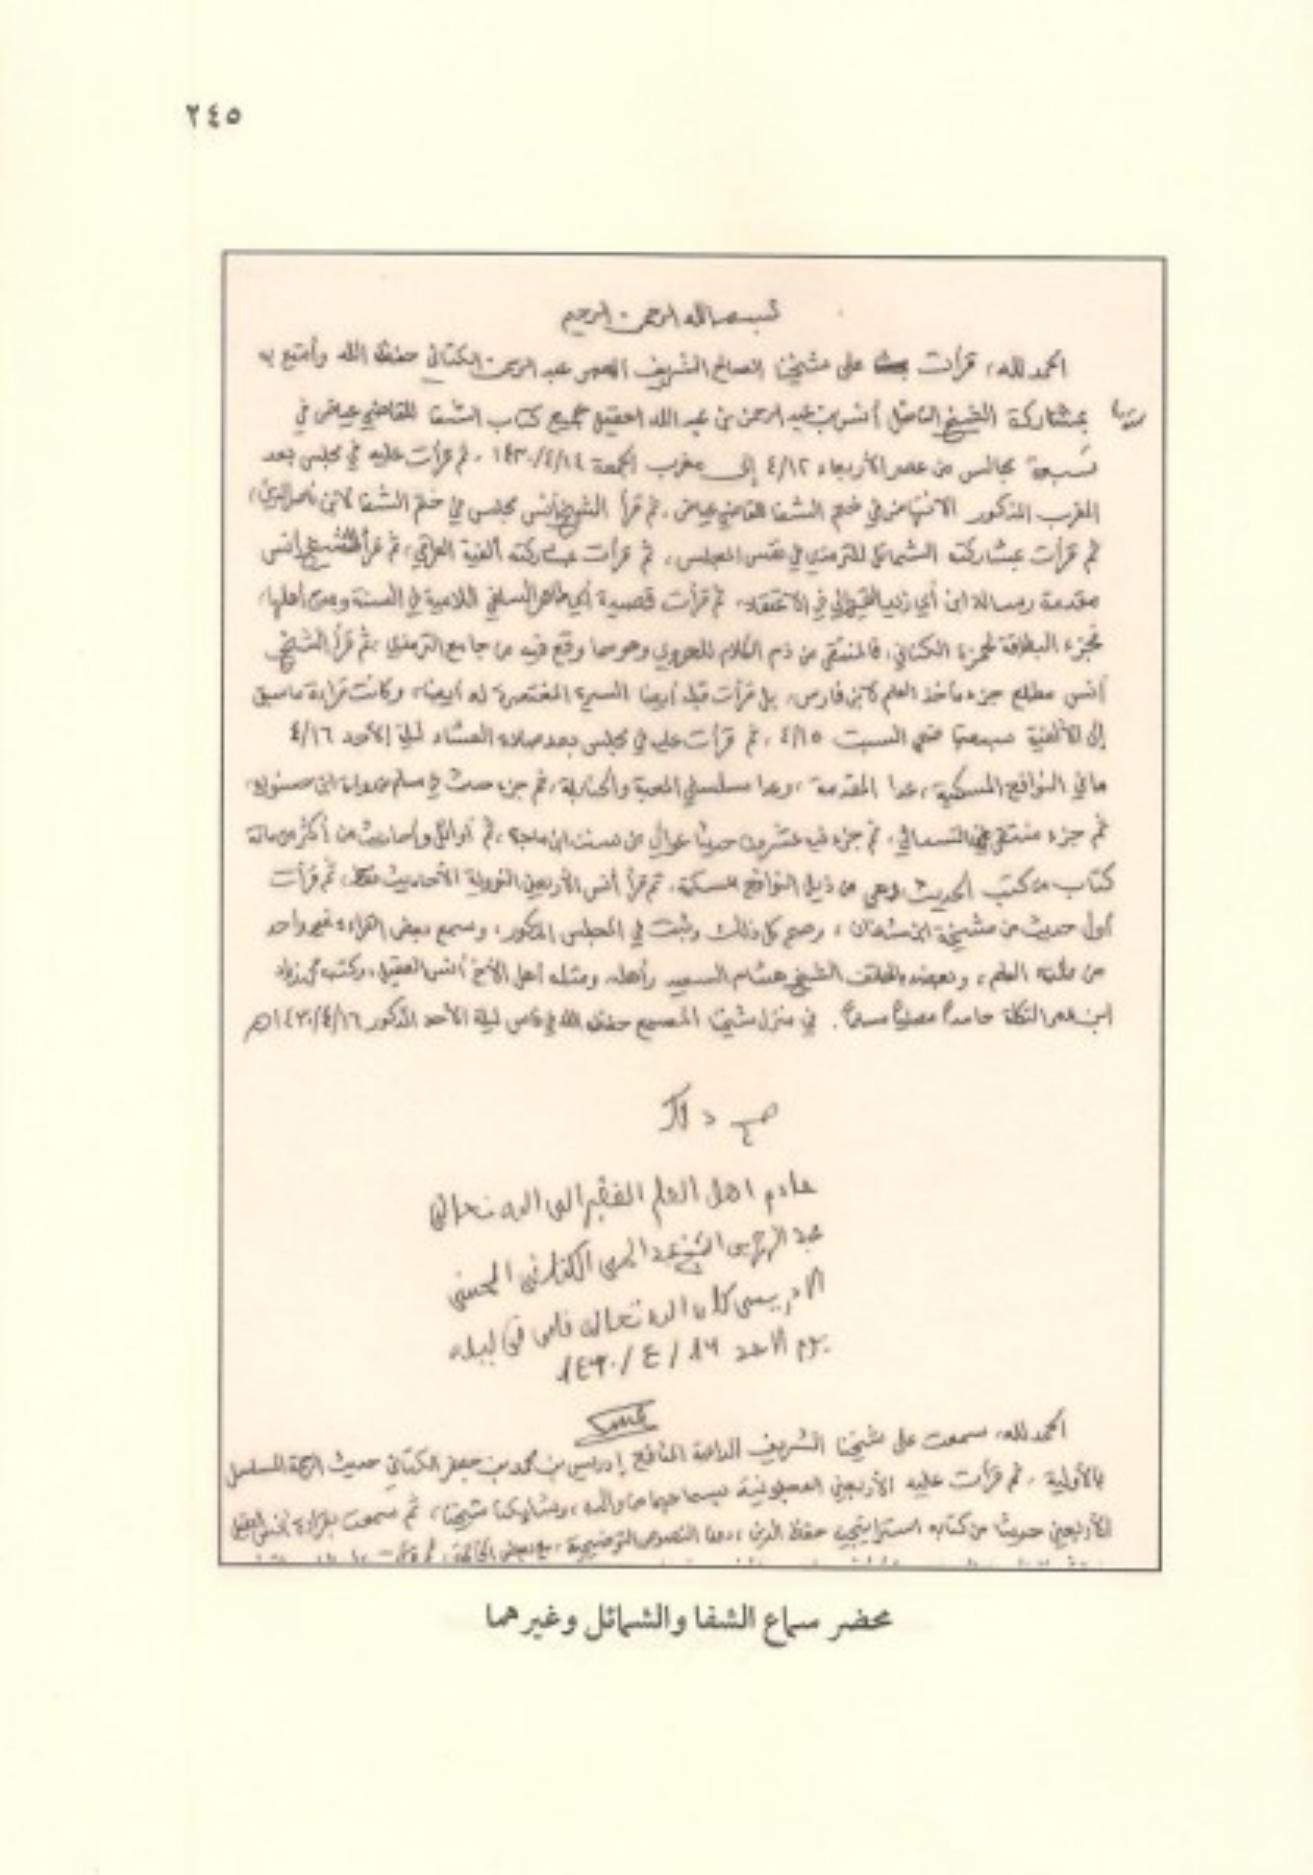 ٢٤٥
بسم الله الرحمن الرحيم
الحمد لله، قرأت على شيخنا الصالح الشريف المعمر عبد الرحمن الكتاني حفظه الله وأمتع به
بمشاركة الشيخ الفاضل أنس بن عبد الرحمن بن عبد الله العقيل جميع كتاب الشفا للقاضي عياض في
سبعة مجالس من عصر الأربعاء ٤/١٢ إلى مغرب الجمعة ١٤٣٠/٤/١٤، ثم قرأت عليه في مجلس بعد
المغرب المذكور الانتهاض في ختم الشفا للقاضي عياض، ثم قرأ الشيخ أنس مجلس في ختم الشفا لابن ناصر الدين،
ثم قرأت بمشاركته الشمائل للترمذي في نفس المجلس، ثم قرأت بمشاركته ألفية العراقي، ثم قرأ الشيخ أنس
مقدمة رسالة ابن أبي زيد القيرواني في الاعتقاد، ثم قرأت قصيدة أبي طاهر السلفي اللامية في السنة ومدح أهلها،
فجزء البطاقة لحمزة الكناني، فالمنتقى من ذم الكلام للهروي وهو مما وقع فيه من جامع الترمذي، ثم قرأ الشيخ
أنس مطلع جزء مأخذ العلم لابن فارس، بل قرأت قبله أيضا السيرة المختصرة له أيضا، وكانت قراءة ما سبق
إلى الألفية صبيحة ضحى السبت ٤/١٥، ثم قرأت عليه في مجلس بعد صلاة العشاء ليلة الأحد ٤/١٦
ما في النوافح المسكية، عدا المقدمة، وعدا مسلسلي المحبة والحنابلة، ثم جزء
ثم جزء منتقى من النسائي، ثم جزء فيه عشرون حديثا عوالي من سنن ابن ماجه، ثم أوائل وأحاديث من أكثر من مائة
كتاب من كتب الحديث وهي من ذيل النوافح المسكية، ثم قرأ أنس الأربعين النووية الأحاديث فقط، ثم قرأت
أول حديث من مشيخة ابن شاذان، وصح كل ذلك وثبت في المجلس المذكور، وسمع بعض القراءة غير واحد
من طلبة العلم، وبعضه بالهاتف الشيخ هشام السعيد وأهله، ومثله أهل الأخ أنس العقيل، وكتب محمد زياد
ابن عمر التكلة حامدا مصليا مسلما. في منزل شيخنا المسمع حفظه الله في فاس ليلة الأحد المذكور ١٤٣٠/٤/١٦هـ
صح ذلك
خادم اهل العلم الفقير الى الله تعالى
عبد الرحمن الشيخ عبد الحي الكتاني الحسني
الادريسي كان الله تعالى
يوم الاحد ١٦ / ٤ / ١٤٣٠
الحمد لله، سمعت على شيخنا الشريف إدريس بن محمد بن جعفر الكتاني حديث الرحمة المسلسل
بالأولية، ثم قرأت عليه الأربعين العجلونية بسماعها من والده، ثم سمعت بقراءة أنس العقيل
الأربعين حديثا من كتابه حفظ الدين، دون النصوص التوضيحية، مع بعض الخاتمة،
محضر سماع الشفا والشمائل وغيرهما